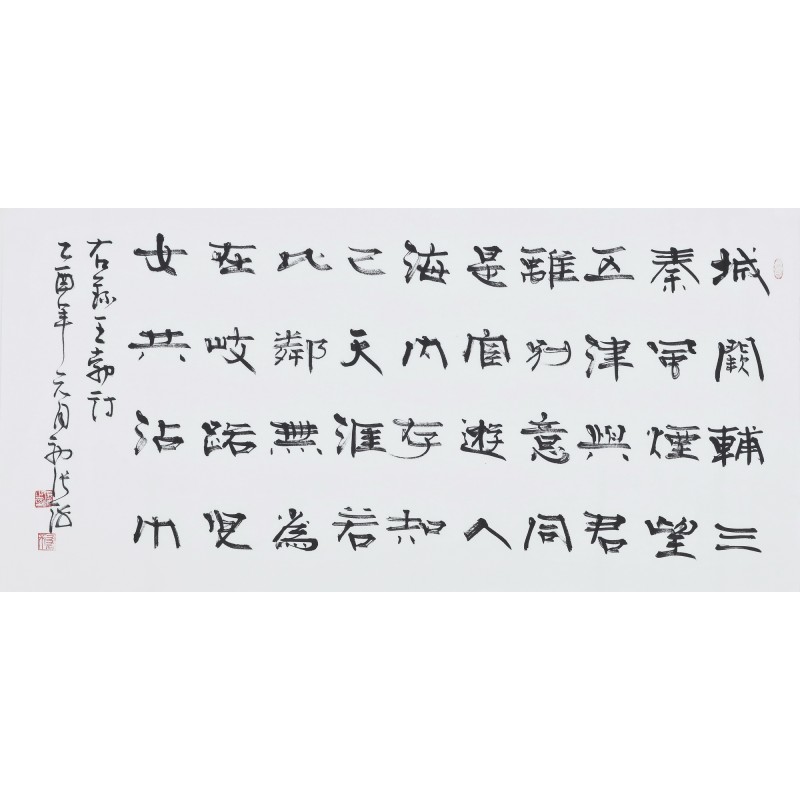 城闕輔三
秦風煙望
五津與君
離別意同
是宦遊人
海內存知
己天涯若
比鄰無為
在岐路兒
女共沾巾
右录王勃討
乙酉年元月初